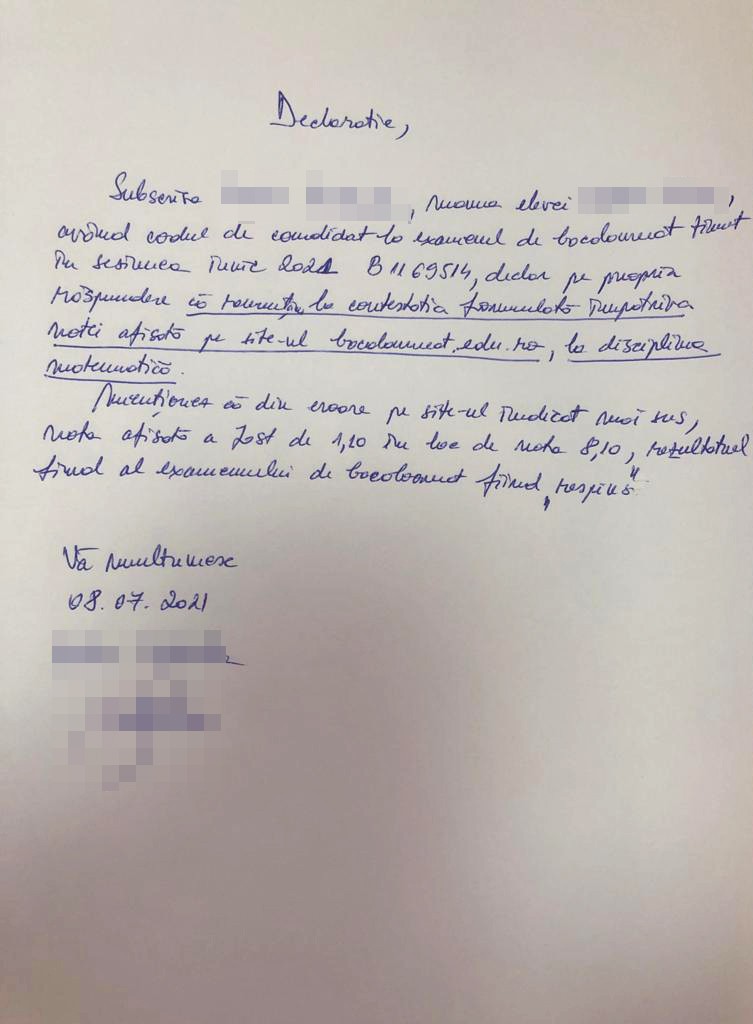 Declaratie,
Subscrisa , mama elevei ,
având codul de candidat la examenul de bacalaureat tinut
în sesiunea iunie 2021 B1169514, declar pe propria
răspundere că renunțăm la contestatia formulată împotriva
notei afișată pe site-ul bacalaureat.edu.ro, la disciplina
matematică.
Mentionez că din eroare pe site-ul indicat mai sus,
nota afișată a fost de 1,10 în loc de nota 8,10, rezultatul
final al examenului de bacalaureat fiind „respins"
Vă multumesc
08.07.2021